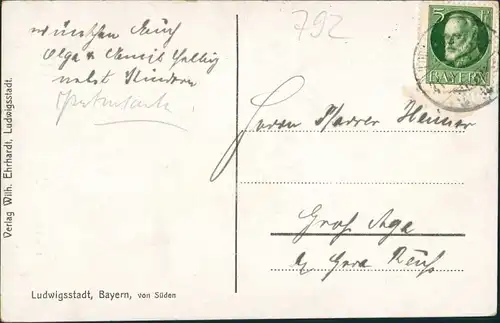 792
5 Pf
BAYERN
wünschen Euch
Olga &
nebst Kindern
Herrn Pfarrer Heuner
Groß Aga
b/ Gera Reuß
Verlag Wilh. Ehrhardt, Ludwigsstadt.
Ludwigsstadt, Bayern, von Süden